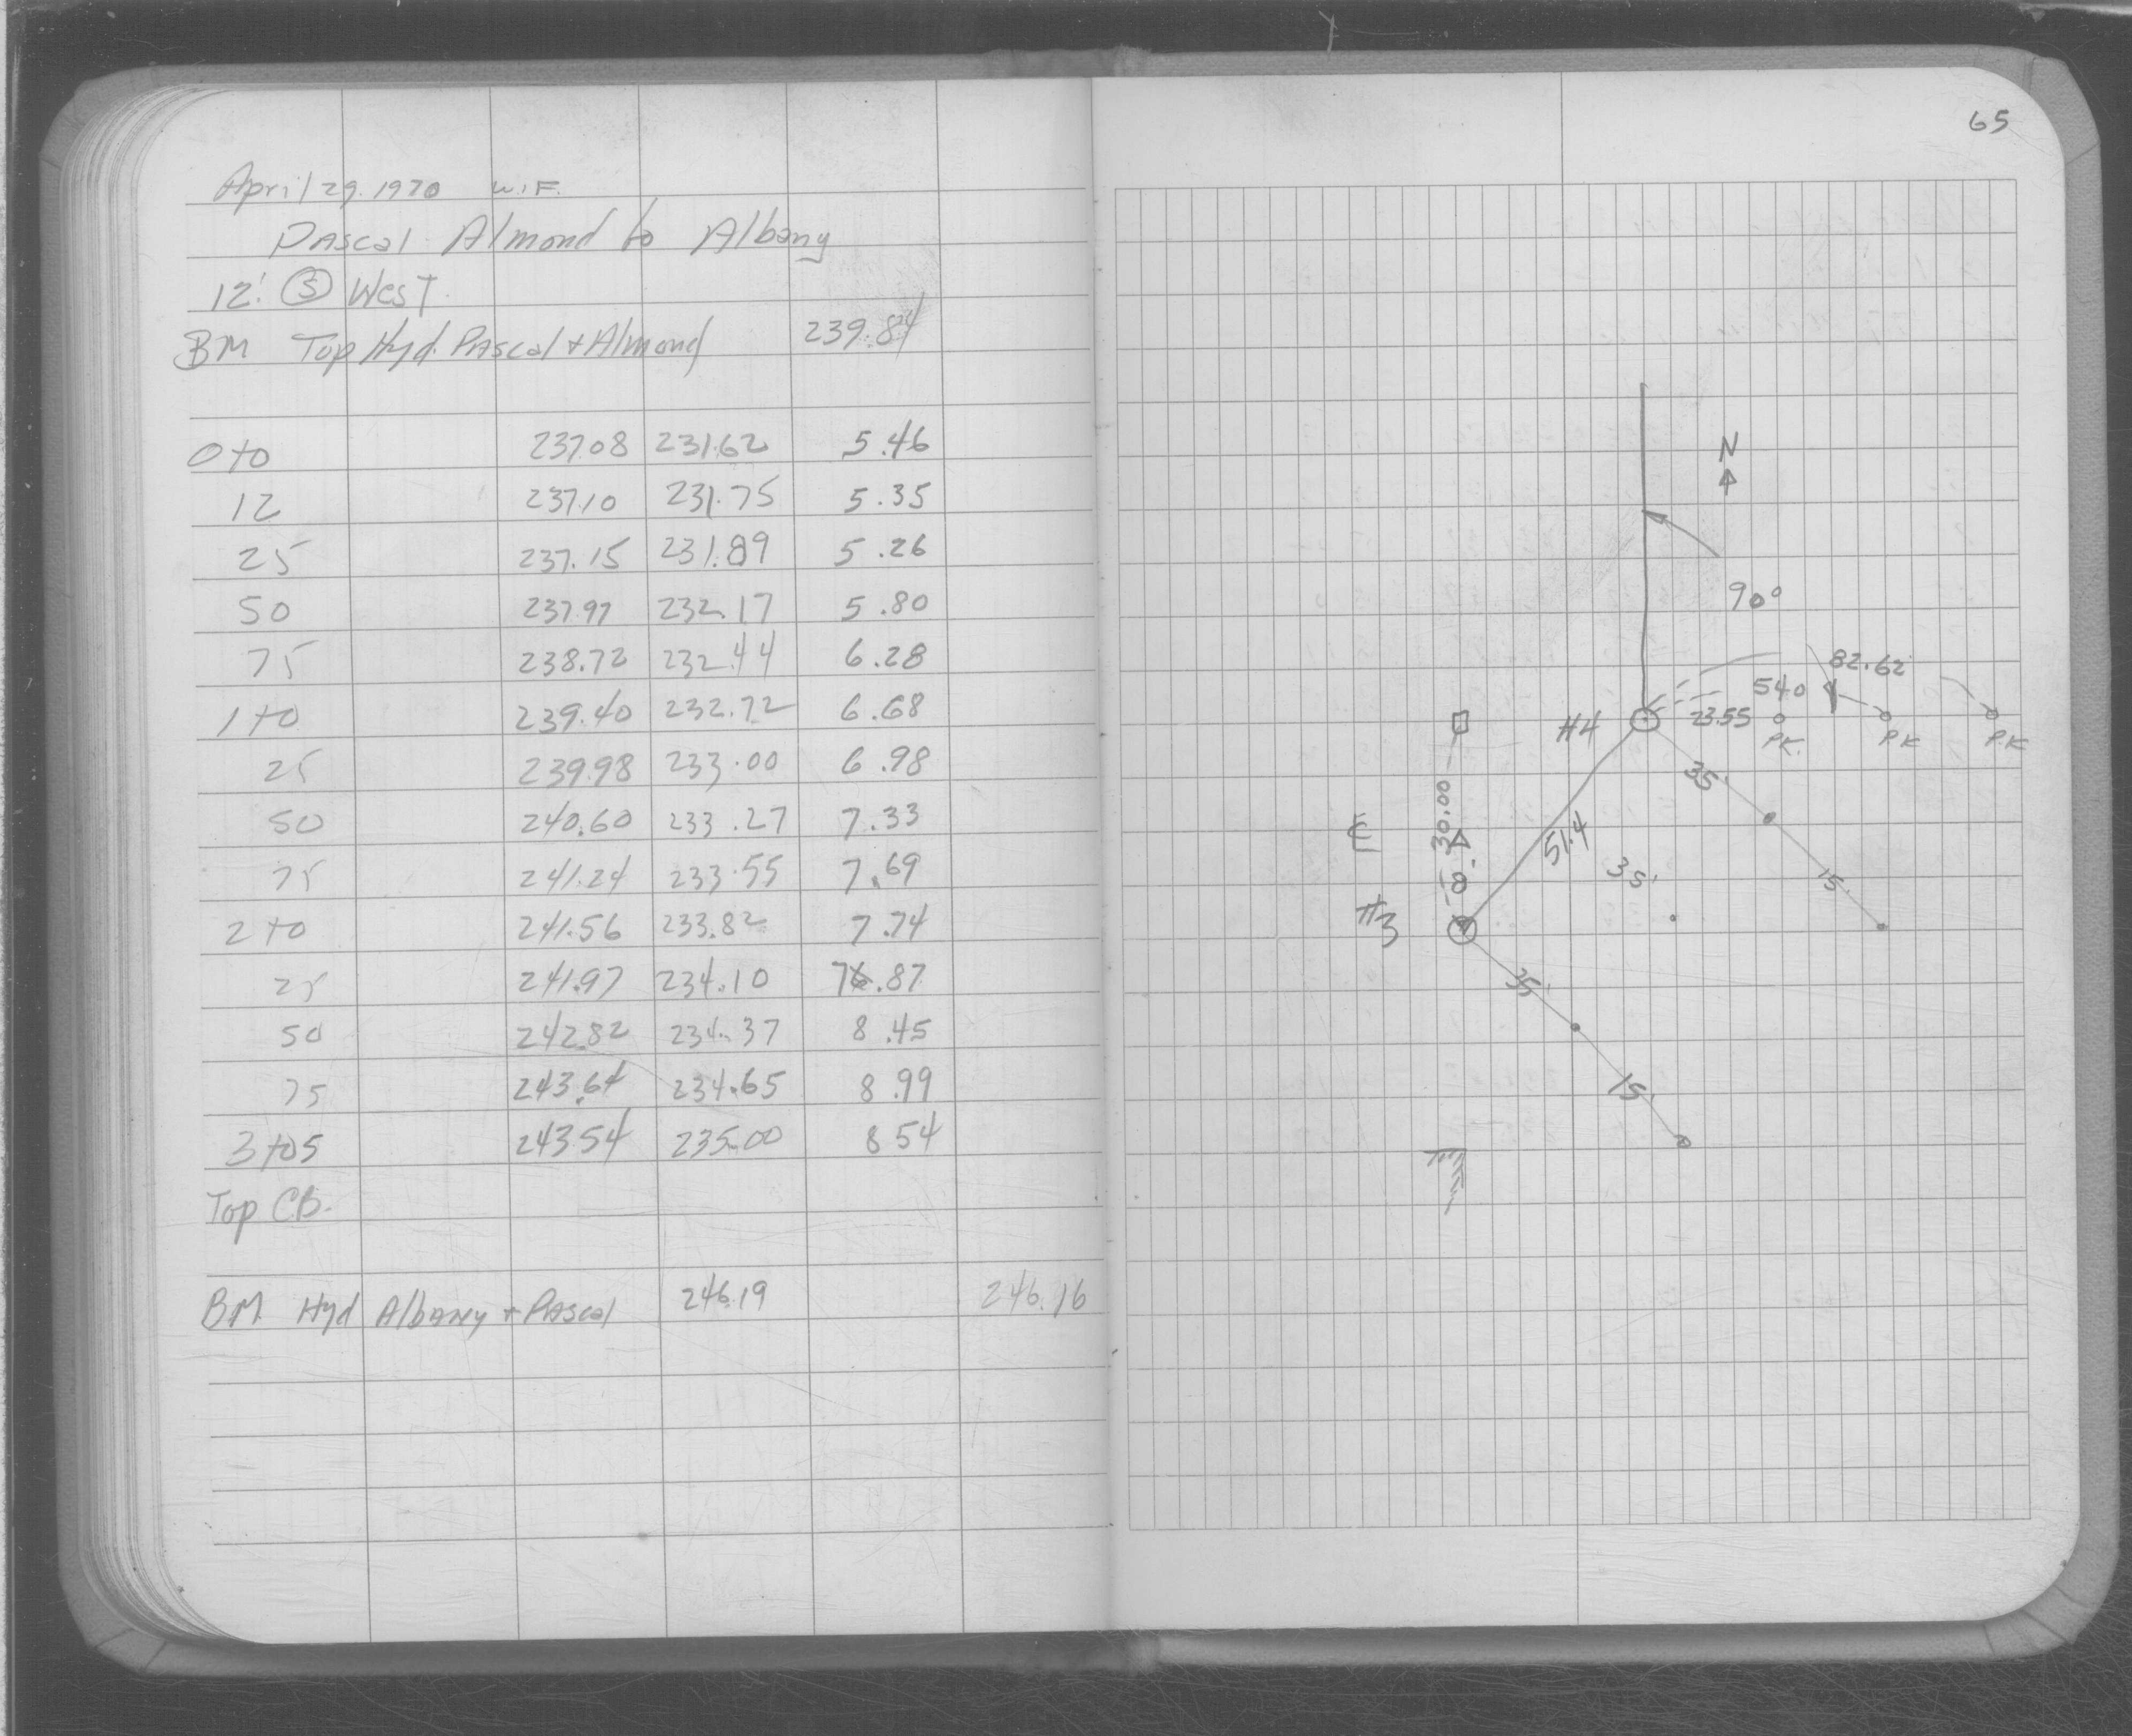 April 29. 1970 W.F.
Pascal Almond to Albany
12' Ⓢ West.
BM Top Hyd. Pascal + Almond 239.84
0+0 237.08 231.62 5.46
12 237.10 231.75 5.35
25 237.15 231.89 5.26
50 237.97 232.17 5.80
75 238.72 232.44 6.28
1+0 239.40 232.72 6.68
25 239.98 233.00 6.98
50 240.60 233.27 7.33
75 241.24 233.55 7.69
2+0 241.56 233.82 7.74
25 241.97 234.10 7.87
50 242.82 234.37 8.45
75 243.64 234.65 8.99
3+05 243.54 235.00 8 54
Top CB.
BM Hyd Albany + Pascal 246.19 246.16
65
N
90°
82.62
54.0
#4 23.55 PK. PK PK
35'
30.00
51.4
35'
15'
8'
#3
35'
15'